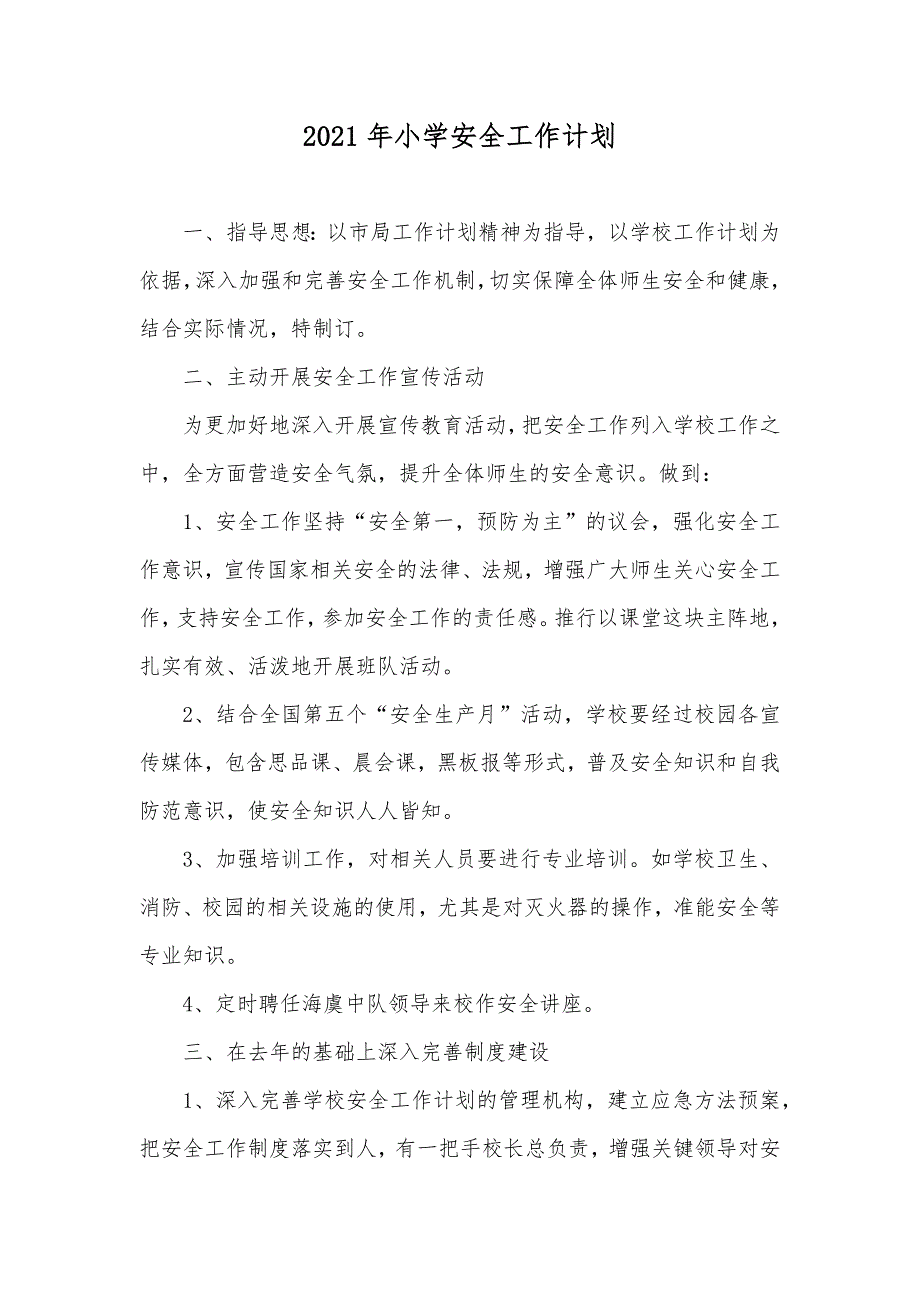 2021 年小学安全工作计划
一、指导思想：以市局工作计划精神为指导，以学校工作计划为
依据，深入加强和完善安全工作机制，切实保障全体师生安全和健康，
结合实际情况，特制订。
二、主动开展安全工作宣传活动
为更加好地深入开展宣传教育活动，把安全工作列入学校工作之
中，全方面营造安全气氛，提升全体师生的安全意识。做到：
1、安全工作坚持“安全第一，预防为主”的议会，强化安全工
作意识，宣传国家相关安全的法律、法规，增强广大师生关心安全工
作，支持安全工作，参加安全工作的责任感。推行以课堂这块主阵地，
扎实有效、活泼地开展班队活动。
2、结合全国第五个“安全生产月”活动，学校要经过校园各宣
传媒体，包含思品课、晨会课，黑板报等形式，普及安全知识和自我
防范意识，使安全知识人人皆知。
3、加强培训工作，对相关人员要进行专业培训。如学校卫生、
消防、校园的相关设施的使用，尤其是对灭火器的操作，准能安全等
专业知识。
4、定时聘任海虞中队领导来校作安全讲座。
三、在去年的基础上深入完善制度建设
1、深入完善学校安全工作计划的管理机构，建立应急方法预案，
把安全工作制度落实到人，有一把手校长总负责，增强关键领导对安